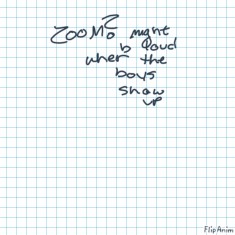 ZOOM? might
b loud
when the
boys
show
up
FlipAnim